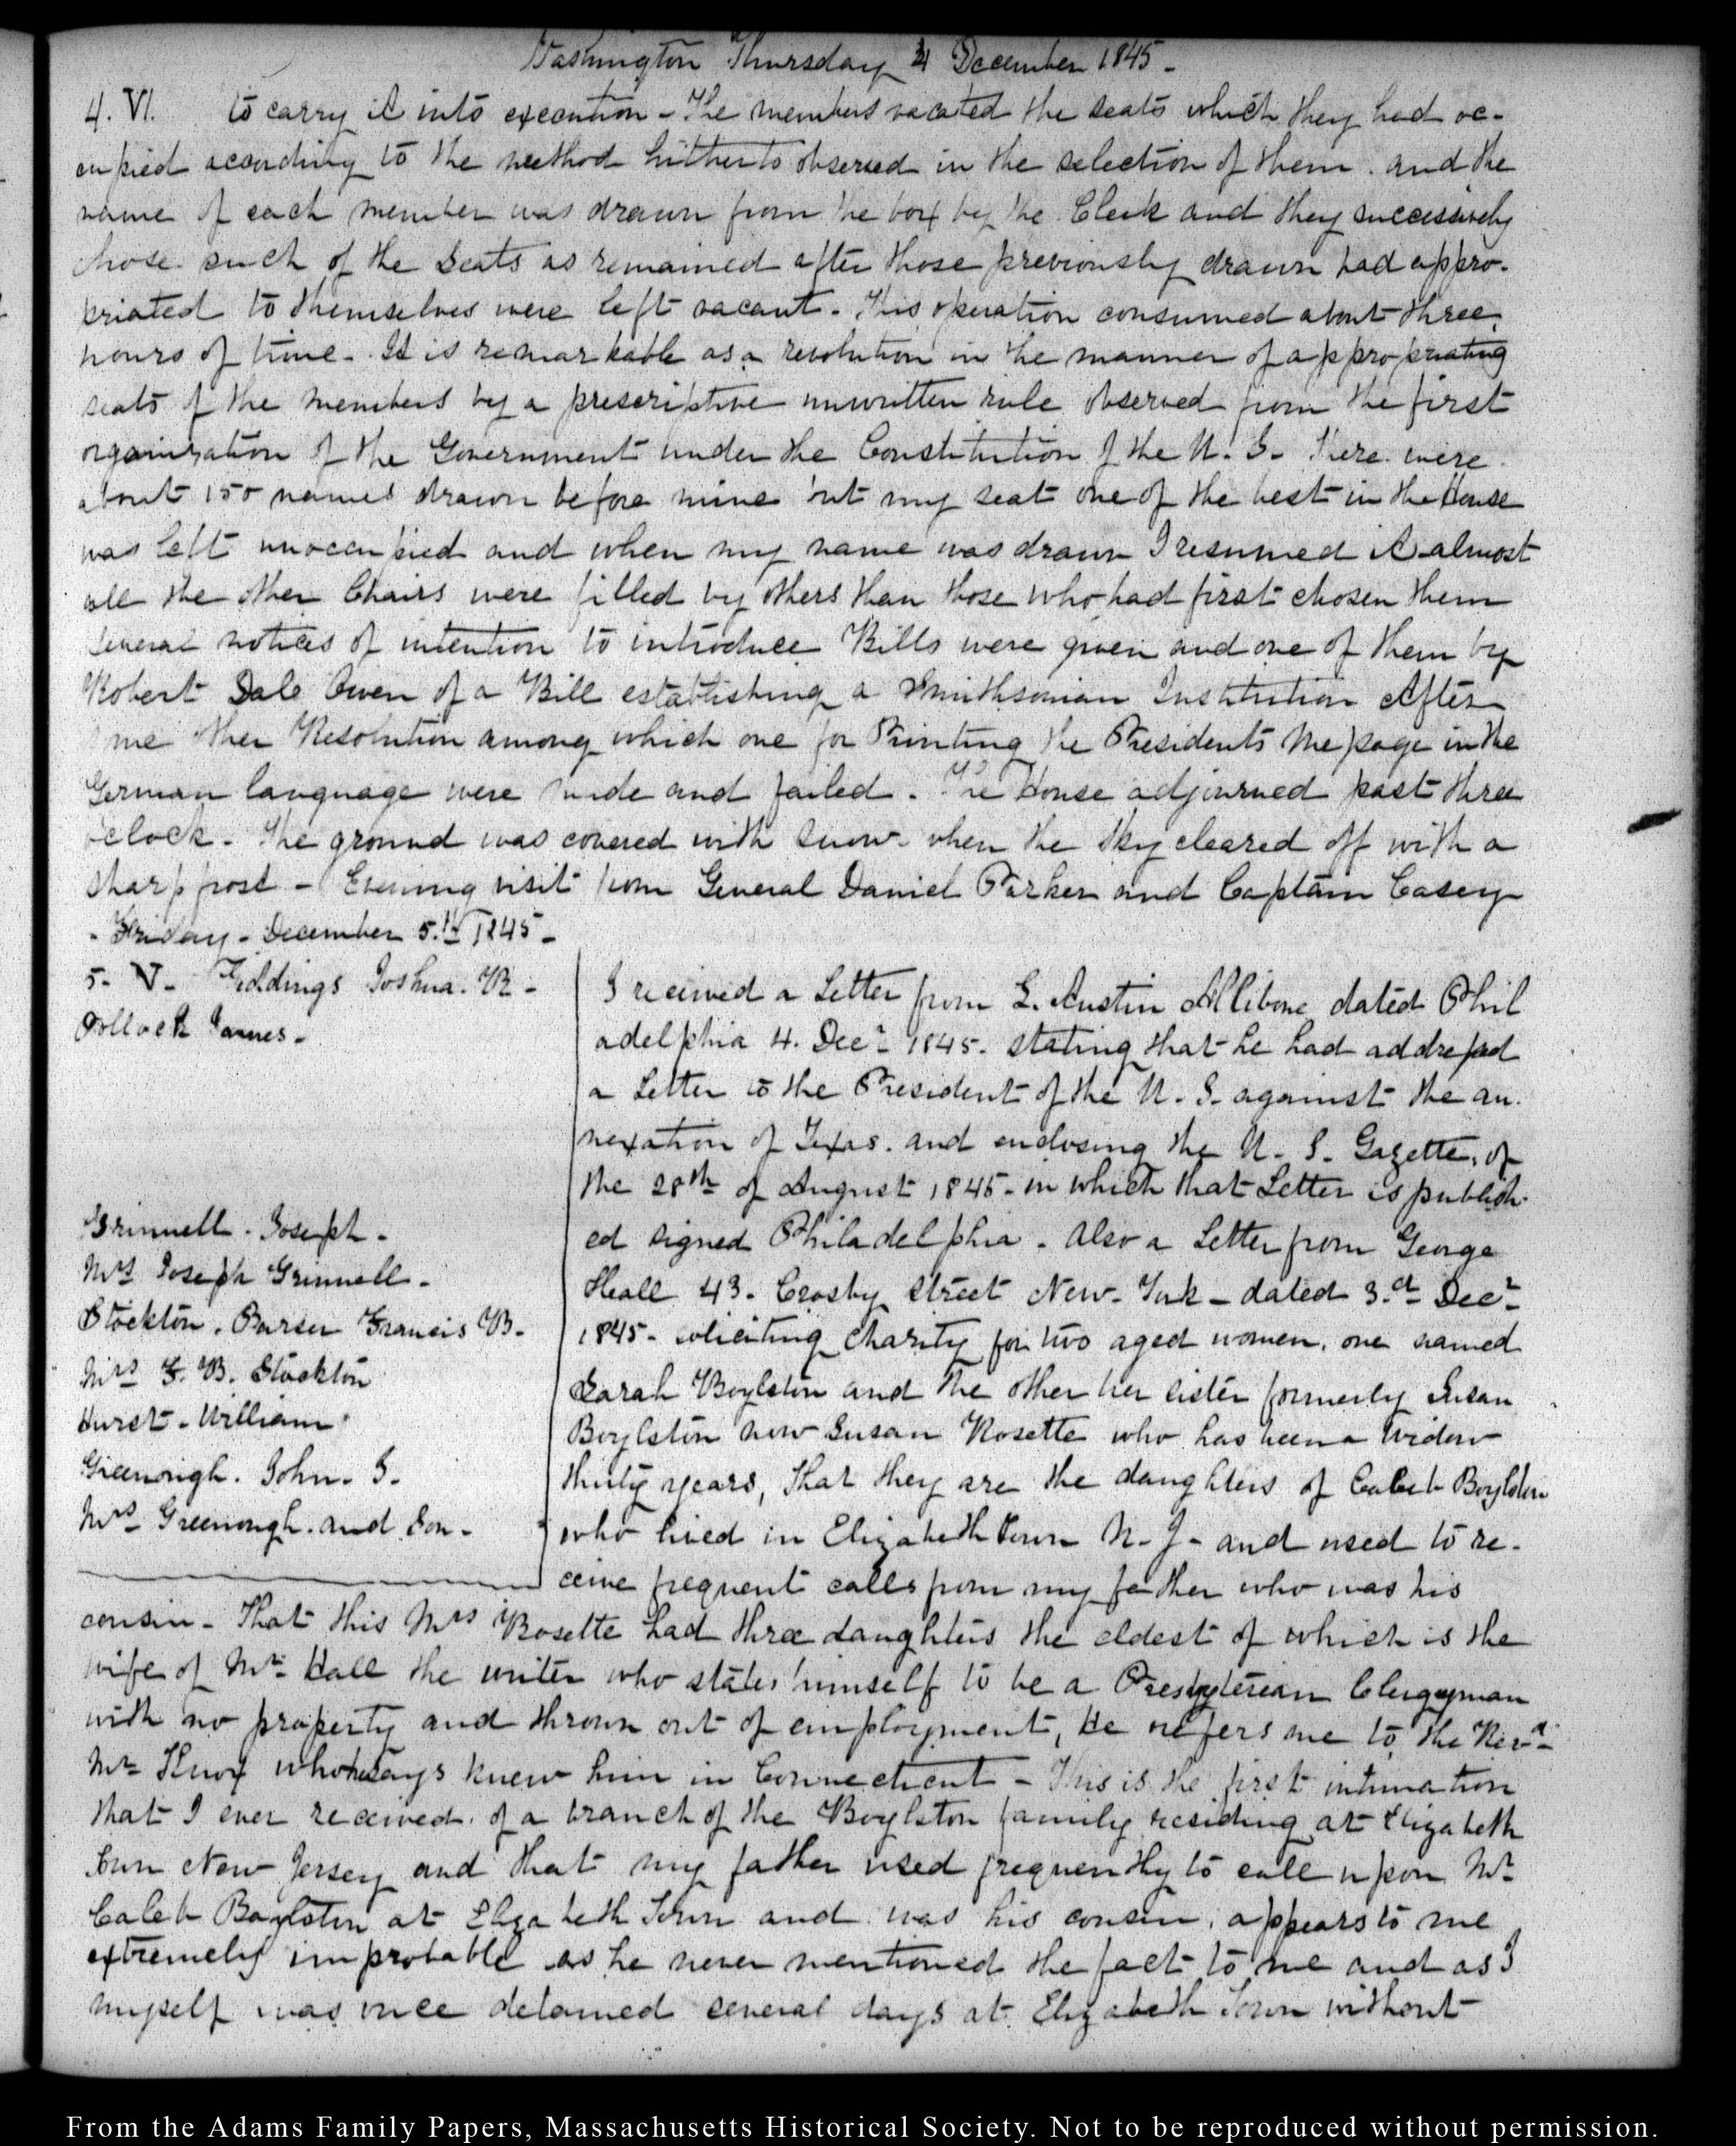 Washington Thursday 4 December 1845 -
4. VI. to carry it into execution - The members vacated the seats which they had oc-
cupied according to the method hitherto observed in the selection of them. and the
name of each member was drawn from the box by the Clerk and they successively
chose such of the Seats as remained after those previously drawn had appro-
priated to themselves were left vacant. This operation consumed about three
hours of time. It is remarkable as a revolution in the manner of appropriating
seats of the members by a prescriptive unwritten rule observed from the first
organization of the Government under the Constitution of the U. S. There were
about 150 names drawn before mine but my seat one of the best in the House
was left unoccupied and when my name was drawn I resumed it almost
all the other Chairs were filled by others than those who had first chosen them
Several notices of intention to introduce Bills were given and one of them by
Robert Dale Owen of a Bill establishing a Smithsonian Institution After
some other Resolution among which one for Printing the Presidents Message in the
German language were made and failed. The House adjourned past three
oclock. The ground was covered with snow when the Sky cleared off with a
sharp frost - Evening visit from General Daniel Parker and Captain Casey
- Friday - December 5.th 1845 -
5. V. Giddings Joshua. R -
Pollock James -
Grinnell. Joseph -
Mrs Joseph Grinnell -
Stockton. Purser Francis B.
Mrs F. B. Stockton
Hurst - William
Greenough. John. S.
Mrs Greenough. and Son -
I received a Letter from S. Austin Allibone dated Phil
adelphia 4. Decr 1845. stating that he had addressed
a Letter to the President of the U. S. against the an-
nexation of Texas. and enclosing the U. S. Gazette, of
the 28th of August 1845 - in which that Letter is publish-
ed signed Philadelphia - Also a Letter from George
Hall 43. Crosby Street New-York - dated 3.d Decr
1845 - soliciting charity for two aged women, one named
Sarah Boylston and the other her sister formerly Susan
Boylston now Susan Rosette who has been a widow
thirty years, that they are the daughters of Caleb Boylston
who lived in Elizabeth Town N. J - and used to re-
ceive frequent calls from my father who was his
cousin - That this Mrs Rosette had three daughters the eldest of which is the
wife of Mr Hall the writer who states himself to be a Presbyterian Clergyman
with no property and thrown out of employment, He refers me to the Revd
Mr Knox who he says knew him in Connecticut - This is the first intimation
that I ever received of a branch of the Boylston family residing at Elizabeth
town New Jersey and that my father used frequently to call upon Mr
Caleb Boylston at Elizabeth Town and was his cousin, appears to me
extremely improbable as he never mentioned the fact to me and as I
myself was once detained several days at Elizabeth Town without
From the Adams Family Papers, Massachusetts Historical Society. Not to be reproduced without permission.